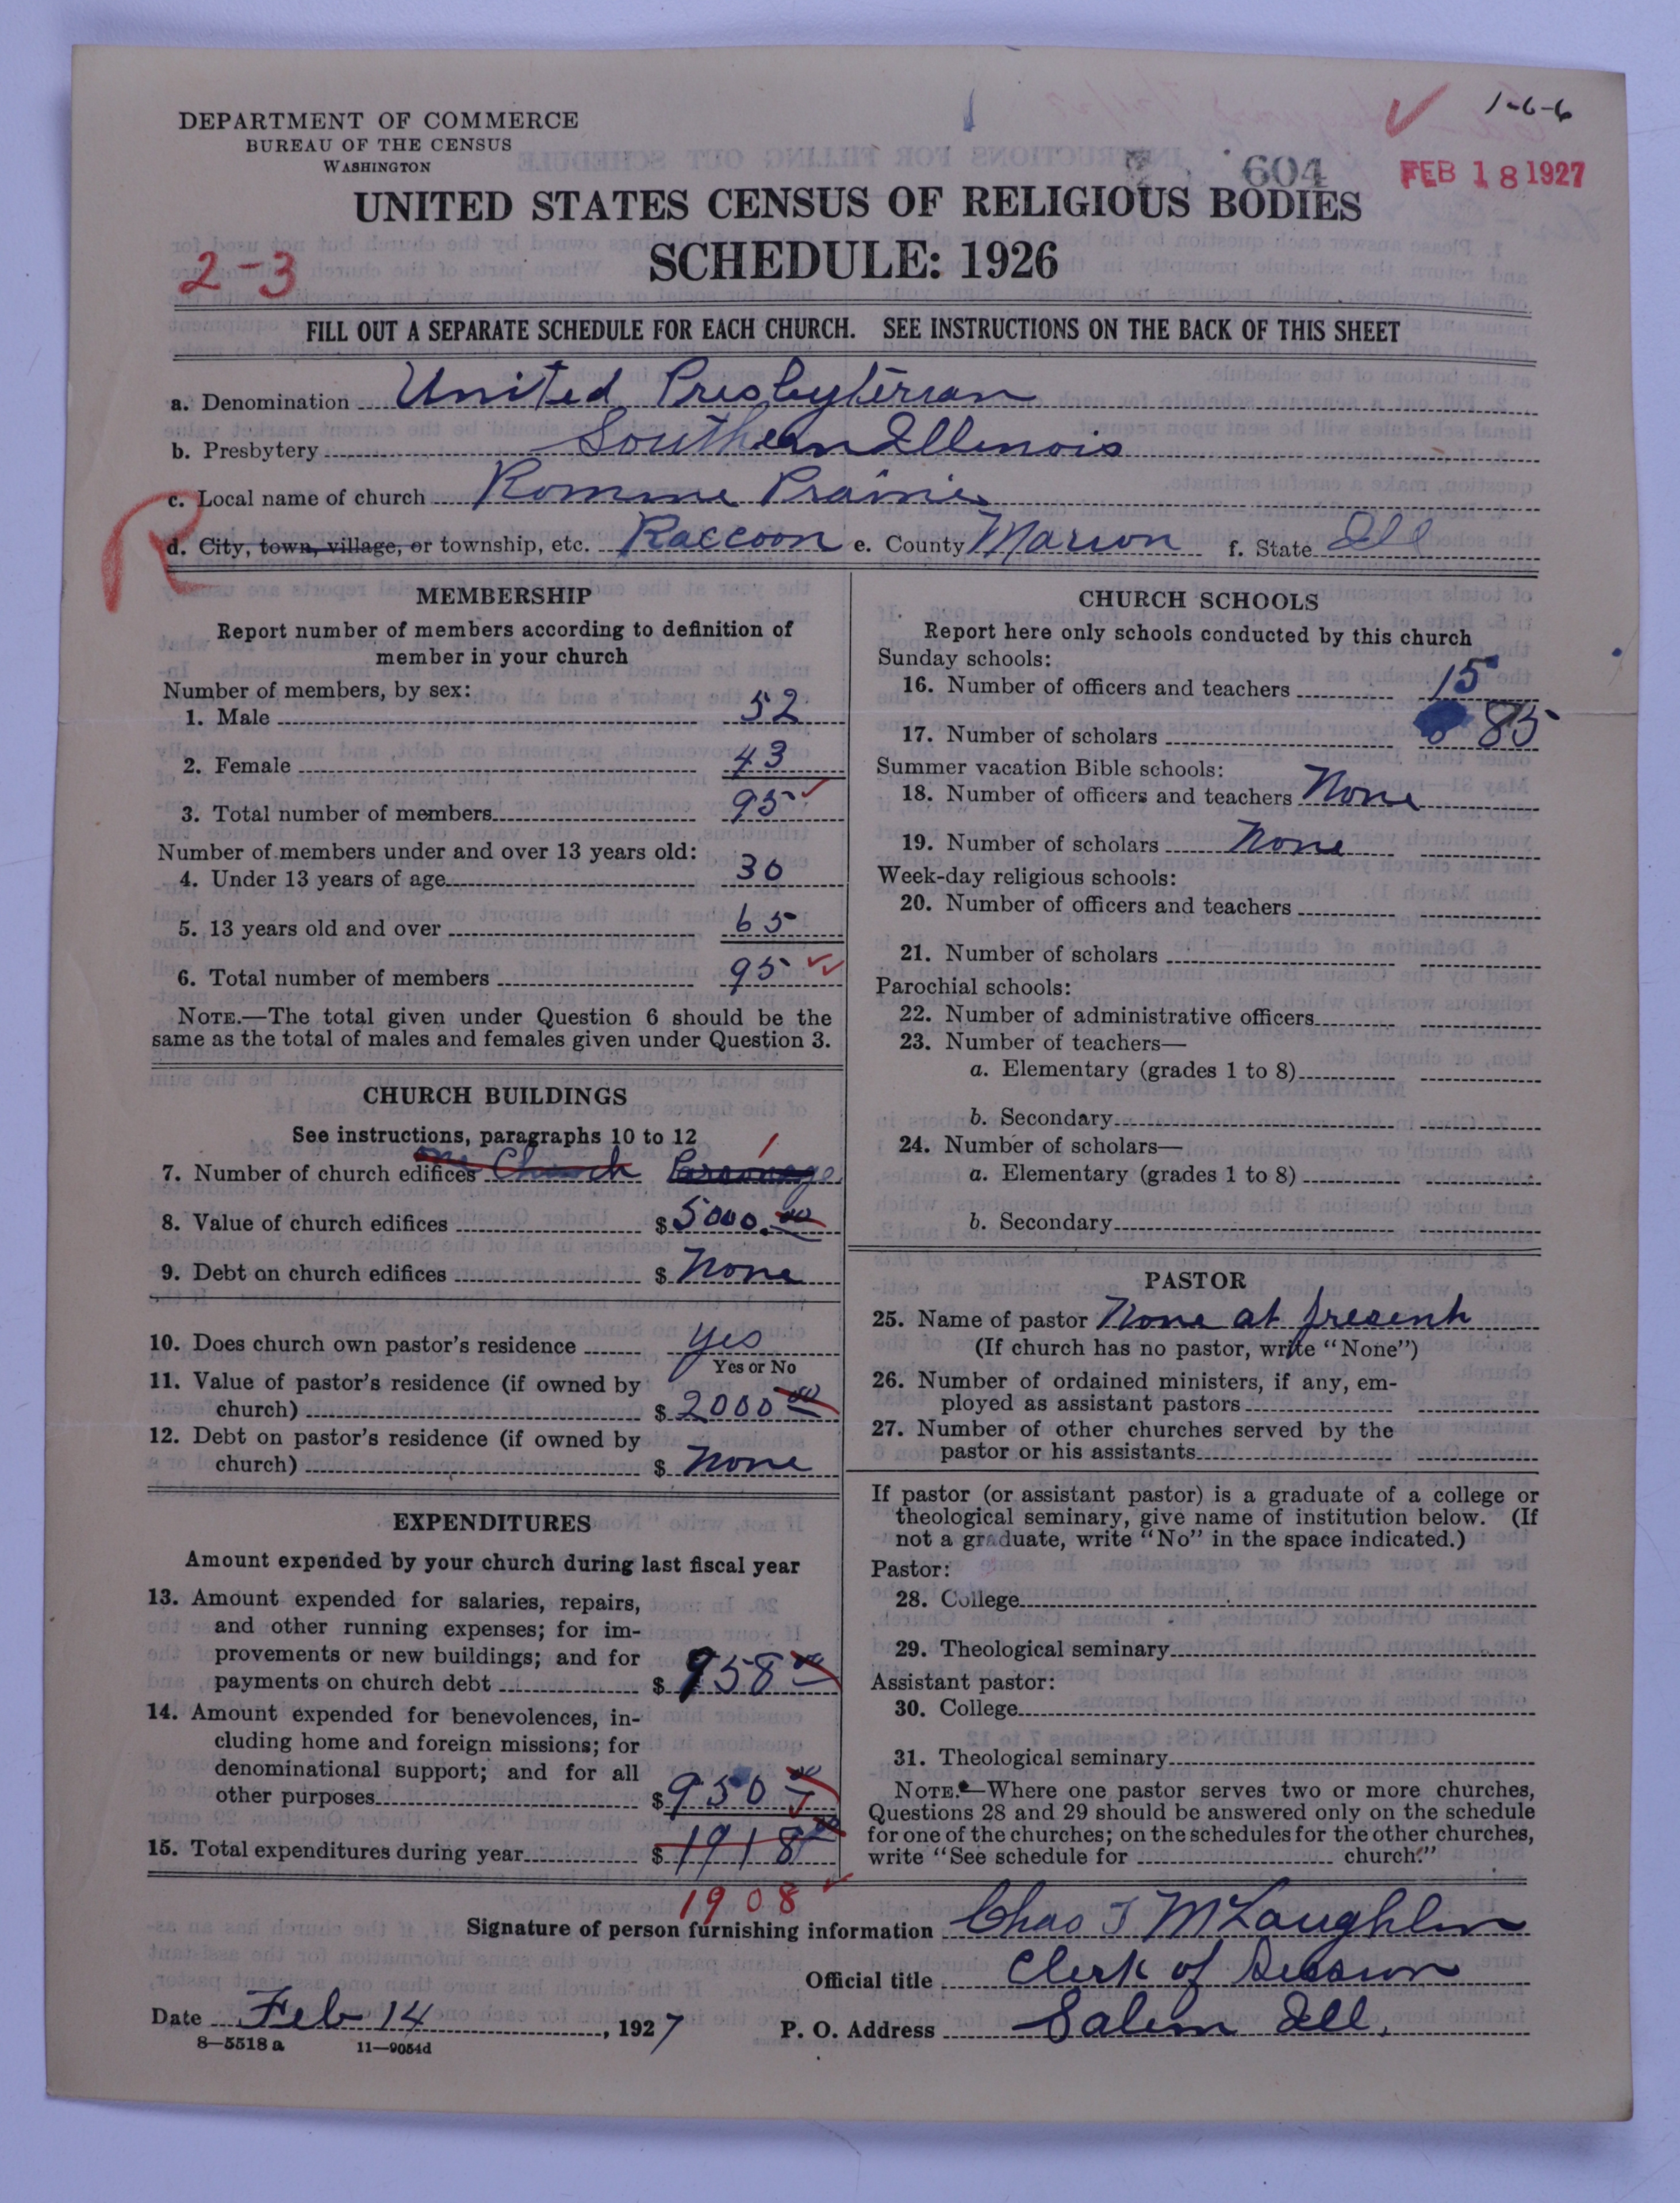 1-6-6
DEPARTMENT OF COMMERCE
BUREAU OF THE CENSUS
WASHINGTON
604
FEB 18 1927
UNITED STATES CENSUS OF RELIGIOUS BODIES
SCHEDULE: 1926
2-3
FILL OUT A SEPARATE SCHEDULE FOR EACH CHURCH. SEE INSTRUCTIONS ON THE BACK OF THIS SHEET
a. Denomination United Presbyterian
b. Presbytery Southern Illinois
c. Local name of church Romine Prairie
R
d. City, town, village, or township, etc. Raccoon e. County Marion f. State Ill
MEMBERSHIP
Report number of members according to definition of
member in your church
Number of members, by sex:
1. Male 52
2. Female 43
3. Total number of members 95
Number of members under and over 13 years old:
4. Under 13 years of age 30
5. 13 years old and over 65
6. Total number of members 95
NOTE.—The total given under Question 6 should be the
same as the total of males and females given under Question 3.
CHURCH BUILDINGS
See instructions, paragraphs 10 to 12
1
7. Number of church edifices One Church Parsonage
8. Value of church edifices $ 5000.00
9. Debt on church edifices $ None
10. Does church own pastor's residence yes
Yes or No
11. Value of pastor's residence (if owned by
church) $ 2000 00
12. Debt on pastor's residence (if owned by
church) $ None
EXPENDITURES
Amount expended by your church during last fiscal year
13. Amount expended for salaries, repairs,
and other running expenses; for im-
provements or new buildings; and for
payments on church debt $ 958 00
14. Amount expended for benevolences, in-
cluding home and foreign missions; for
denominational support; and for all
other purposes $ 950 00
15. Total expenditures during year $ 1918 00
1908
CHURCH SCHOOLS
Report here only schools conducted by this church
Sunday schools:
16. Number of officers and teachers 15
17. Number of scholars 85
Summer vacation Bible schools:
18. Number of officers and teachers None
19. Number of scholars None
Week-day religious schools:
20. Number of officers and teachers
21. Number of scholars
Parochial schools:
22. Number of administrative officers
23. Number of teachers—
a. Elementary (grades 1 to 8)
b. Secondary
24. Number of scholars—
a. Elementary (grades 1 to 8)
b. Secondary
PASTOR
25. Name of pastor None at present
(If church has no pastor, write "None")
26. Number of ordained ministers, if any, em-
ployed as assistant pastors
27. Number of other churches served by the
pastor or his assistants
If pastor (or assistant pastor) is a graduate of a college or
theological seminary, give name of institution below. (If
not a graduate, write "No" in the space indicated.)
Pastor:
28. College
29. Theological seminary
Assistant pastor:
30. College
31. Theological seminary
NOTE.—Where one pastor serves two or more churches,
Questions 28 and 29 should be answered only on the schedule
for one of the churches; on the schedules for the other churches,
write "See schedule for church."
Signature of person furnishing information Chas T McLaughlin
Official title Clerk of Session
Date Feb 14, 1927 P. O. Address Salem Ill.
8—5518 a 11—9054d